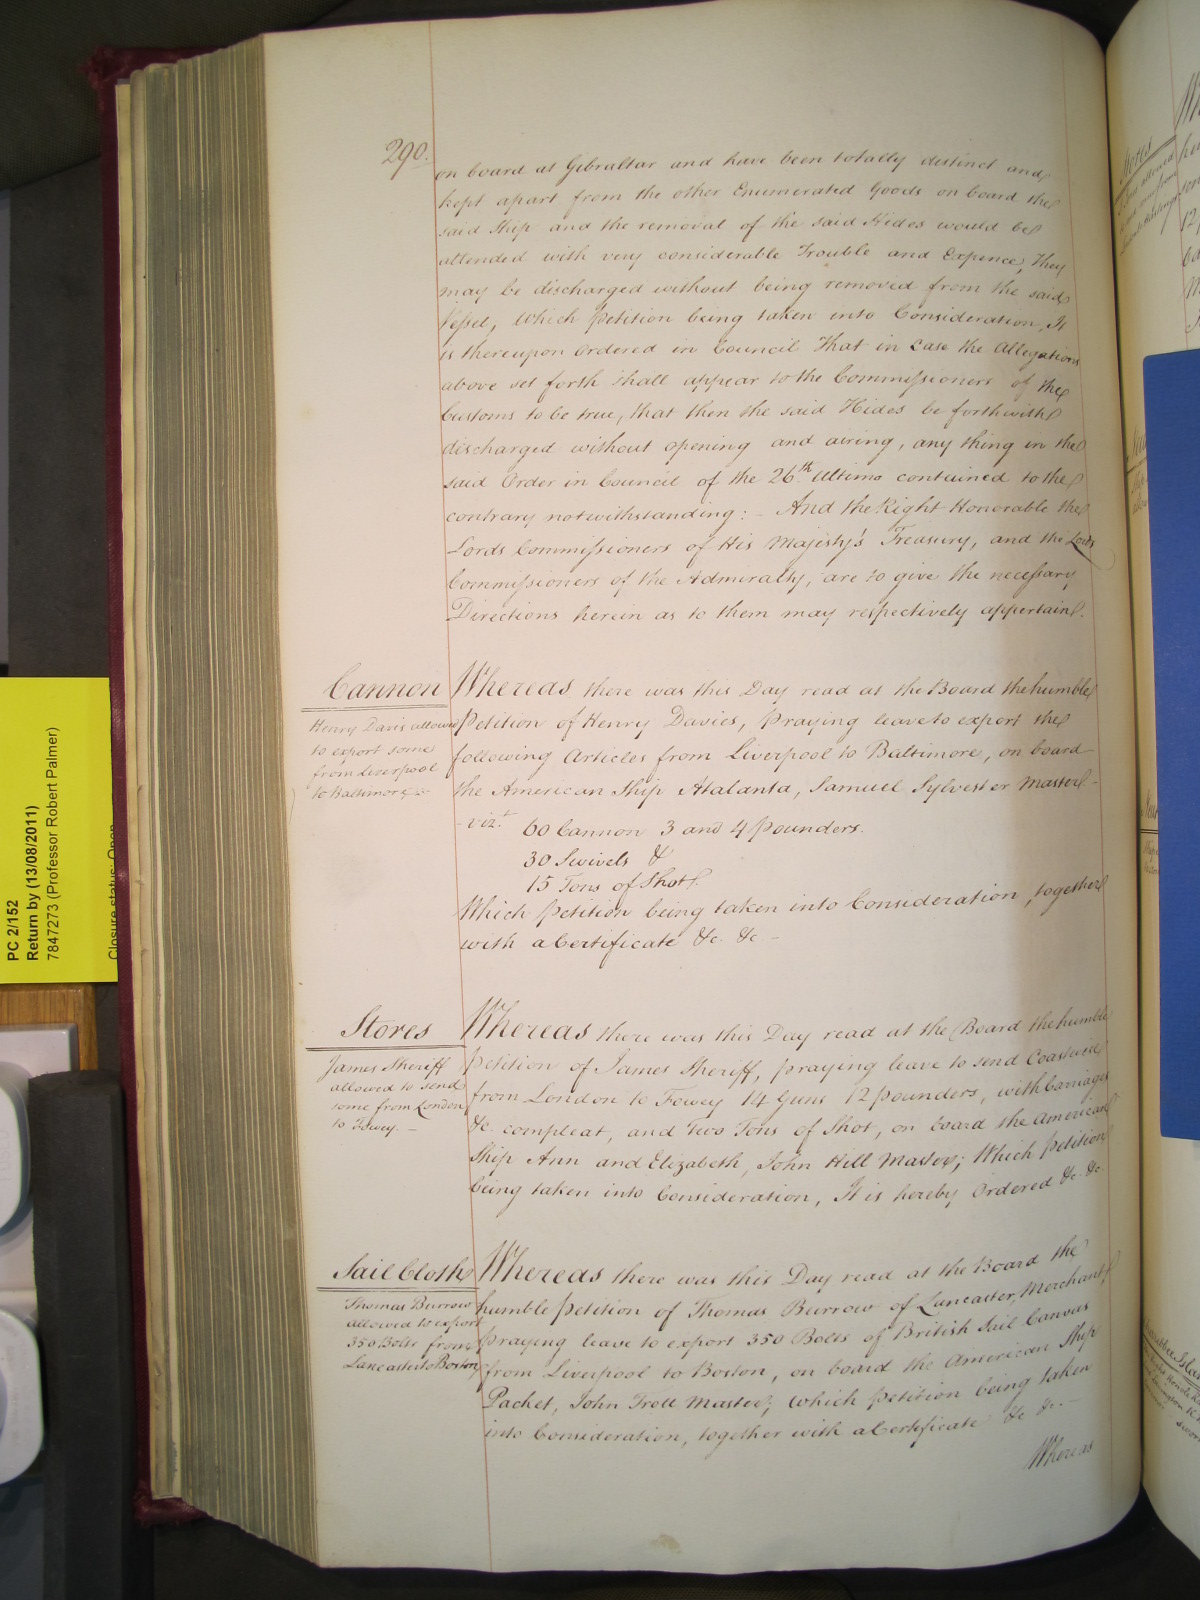 290.
on board at Gibraltar and have been totally distinct and
kept apart from the other Enumerated Goods on board the
said Ship and the removal of the said Hides would be
attended with very considerable Trouble and Expence, they
may be discharged without being removed from the said
Vessel, Which Petition being taken into Consideration, It
is thereupon Ordered in Council That in Case the Allegations
above set forth shall appear to the Commissioners of the
Customs to be true, that then the said Hides be forthwith
discharged without opening and airing, any thing in the
said Order in Council of the 26th Ultimo contained to the
contrary notwithstanding: - And the Right Honorable the
Lords Commissioners of His Majesty's Treasury, and the Lords
Commissioners of the Admiralty, are to give the necessary
Directions herein as to them may respectively appertain.
Cannon
Henry Davis allowed
to export some
from Liverpool
to Baltimore
Whereas there was this Day read at the Board the humble
Petition of Henry Davies, Praying leave to export the
following Articles from Liverpool to Baltimore, on board
the American Ship Atalanta, Samuel Sylvester Master -
- vizt. 60 Cannon 3 and 4 pounders.
30 Swivels &
15 Tons of Shot.
Which Petition being taken into Consideration, together
with a Certificate &c. &c -
Stores
James Sheriff
allowed to send
some from London
to Fowey. -
Whereas there was this Day read at the Board the humble
Petition of James Sheriff, praying leave to send Coastwise
from London to Fowey 14 Guns 12 pounders, with Carriages
&c. compleat, and Two Tons of Shot, on board the American
Ship Ann and Elizabeth, John Hill Master; Which Petition
being taken into Consideration, It is hereby Ordered &c. &c.
Sail Cloth
Thomas Burrow
allowed to export
350 Bolts from
Lancaster to Boston
Whereas there was this Day read at the Board the
humble Petition of Thomas Burrow of Lancaster, Merchant,
praying leave to export 350 Bolts of British Sail Canvas
from Liverpool to Boston, on board the American Ship
Packet, John Trott Master; Which Petition being taken
into Consideration, together with a Certificate &c &c. -
Whereas
PC 2/152
Return by (13/08/2011)
7847273 (Professor Robert Palmer)
Closure status: Open
Stores